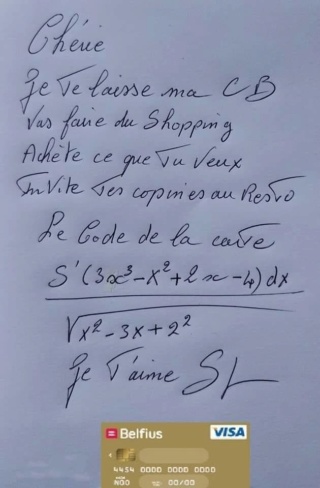 Chérie
Je Te laisse ma CB
Vas faire du Shopping
Achète ce que Tu Veux
InVite Tes copines au Resto
Le Code de la carte
S'(3x³-x²+2x-4)dx
√x²-3x+2²
Je T'aime
Belfius
VISA
4454 0000 0000 0000
00/00